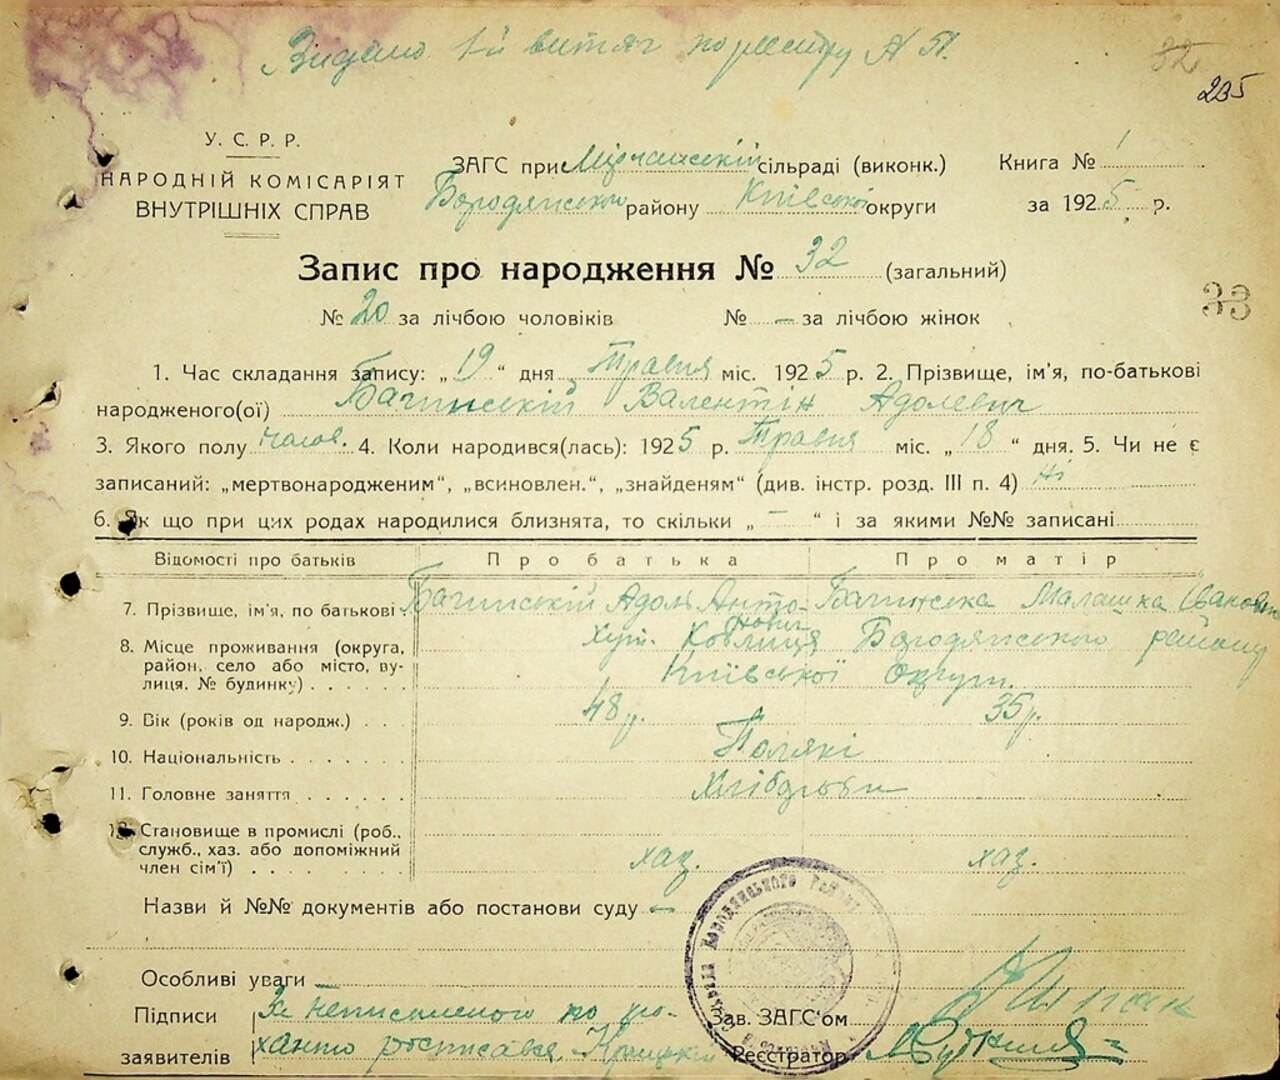 Видано 1й витяг по реєстру № 51.
32
235
У. С. Р. Р.
НАРОДНІЙ КОМІСАРІЯТ
ВНУТРІШНІХ СПРАВ
ЗАГС при Мірчанській сільраді (виконк.)
Бородянського району Київської округи
Книга № 1
за 1925 р.
Запис про народження № 32 (загальний)
33
№ 20 за лічбою чоловіків № — за лічбою жінок
1. Час складання запису: „19“ дня Травня міс. 1925 р. 2. Прізвище, ім'я, по-батькові
народженого(ої) Бачинській Валентін Адолевич
3. Якого полу чолов. 4. Коли народився(лась): 1925 р. Травня міс. „18“ дня. 5. Чи не є
записаний: „мертвонародженим“, „всиновлен.“, „знайденям“ (див. інстр. розд. III п. 4) Ні
6. Як що при цих родах народилися близнята, то скільки „—“ і за якими №№ записані
Відомості про батьків Про батька Про матір
7. Прізвище, ім'я, по батькові Бачинській Адоль Антонович Бачинська Малашка Івановн
8. Місце проживання (округа, район, село або місто, вулиця, № будинку) хут. Бородянського району
Київської округи.
9. Вік (років од народж.) 48 р. 35 р.
10. Національність Полякі
11. Головне заняття Хлібороби
12. Становище в промислі (роб., служб., хаз. або допоміжний член сім'ї) хаз. хаз.
Назви й №№ документів або постанови суду —
Особливі уваги —
Підписи заявителів За неписьменого по проханню росписався
Зав. ЗАГС'ом
Реєстратор